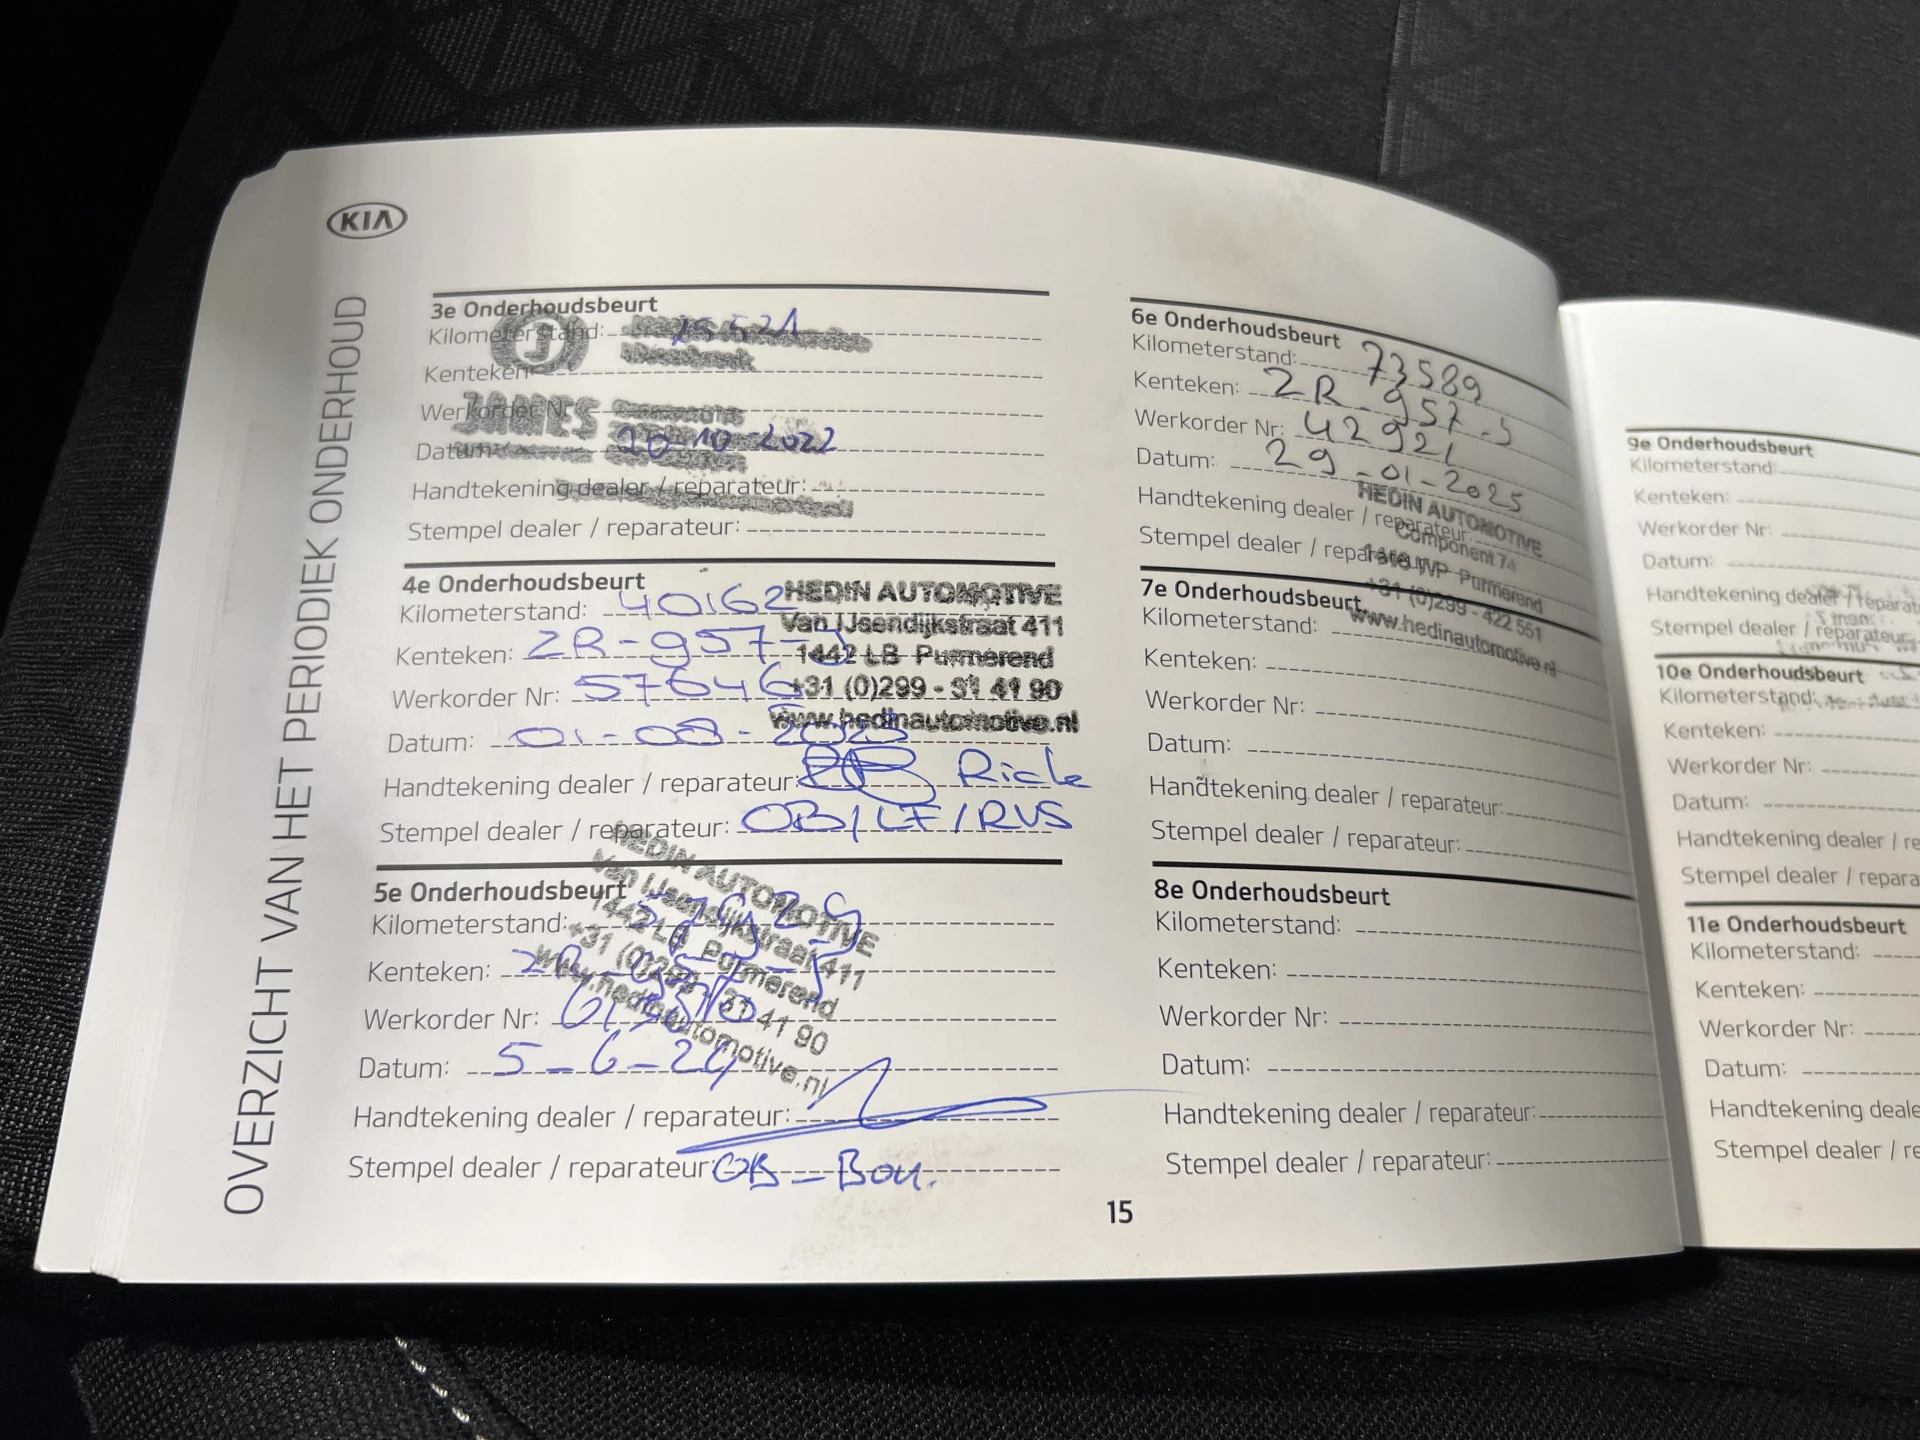 KIA
OVERZICHT VAN HET PERIODIEK ONDERHOUD
3e Onderhoudsbeurt
Kilometerstand:
Kenteken:
Werkorder Nr:
JAMES
Datum: 20-10-2022
Handtekening dealer / reparateur:
Stempel dealer / reparateur:
4e Onderhoudsbeurt
Kilometerstand: 40162
Kenteken: ZR-957-J
Werkorder Nr: 57646
Datum: 01-08-2023
Handtekening dealer / reparateur: Rick
Stempel dealer / reparateur: OB/LF/RVS
HEDIN AUTOMOTIVE
Van IJsendijkstraat 411
1442 LB Purmerend
+31 (0)299 - 31 41 90
www.hedinautomotive.nl
5e Onderhoudsbeurt
Kilometerstand:
Kenteken:
Werkorder Nr:
Datum: 5-6-24
Handtekening dealer / reparateur:
Stempel dealer / reparateur: OB
HEDIN AUTOMOTIVE
Van IJsendijkstraat 411
1442 LB Purmerend
+31 (0)299 - 31 41 90
www.hedinautomotive.nl
6e Onderhoudsbeurt
Kilometerstand: 73589
Kenteken: ZR-957-J
Werkorder Nr: 42921
Datum: 29-01-2025
Handtekening dealer / reparateur:
Stempel dealer / reparateur:
HEDIN AUTOMOTIVE
Component 74
WP Purmerend
+31 (0)299 - 422 551
www.hedinautomotive.nl
7e Onderhoudsbeurt
Kilometerstand:
Kenteken:
Werkorder Nr:
Datum:
Handtekening dealer / reparateur:
Stempel dealer / reparateur:
8e Onderhoudsbeurt
Kilometerstand:
Kenteken:
Werkorder Nr:
Datum:
Handtekening dealer / reparateur:
Stempel dealer / reparateur:
15
9e Onderhoudsbeurt
Kilometerstand:
Kenteken:
Werkorder Nr:
Datum:
Handtekening dealer / reparat
Stempel dealer / reparateur
10e Onderhoudsbeurt
Kilometerstand:
Kenteken:
Werkorder Nr:
Datum:
Handtekening dealer / re
Stempel dealer / repara
11e Onderhoudsbeurt
Kilometerstand:
Kenteken:
Werkorder Nr:
Datum:
Handtekening deale
Stempel dealer / re